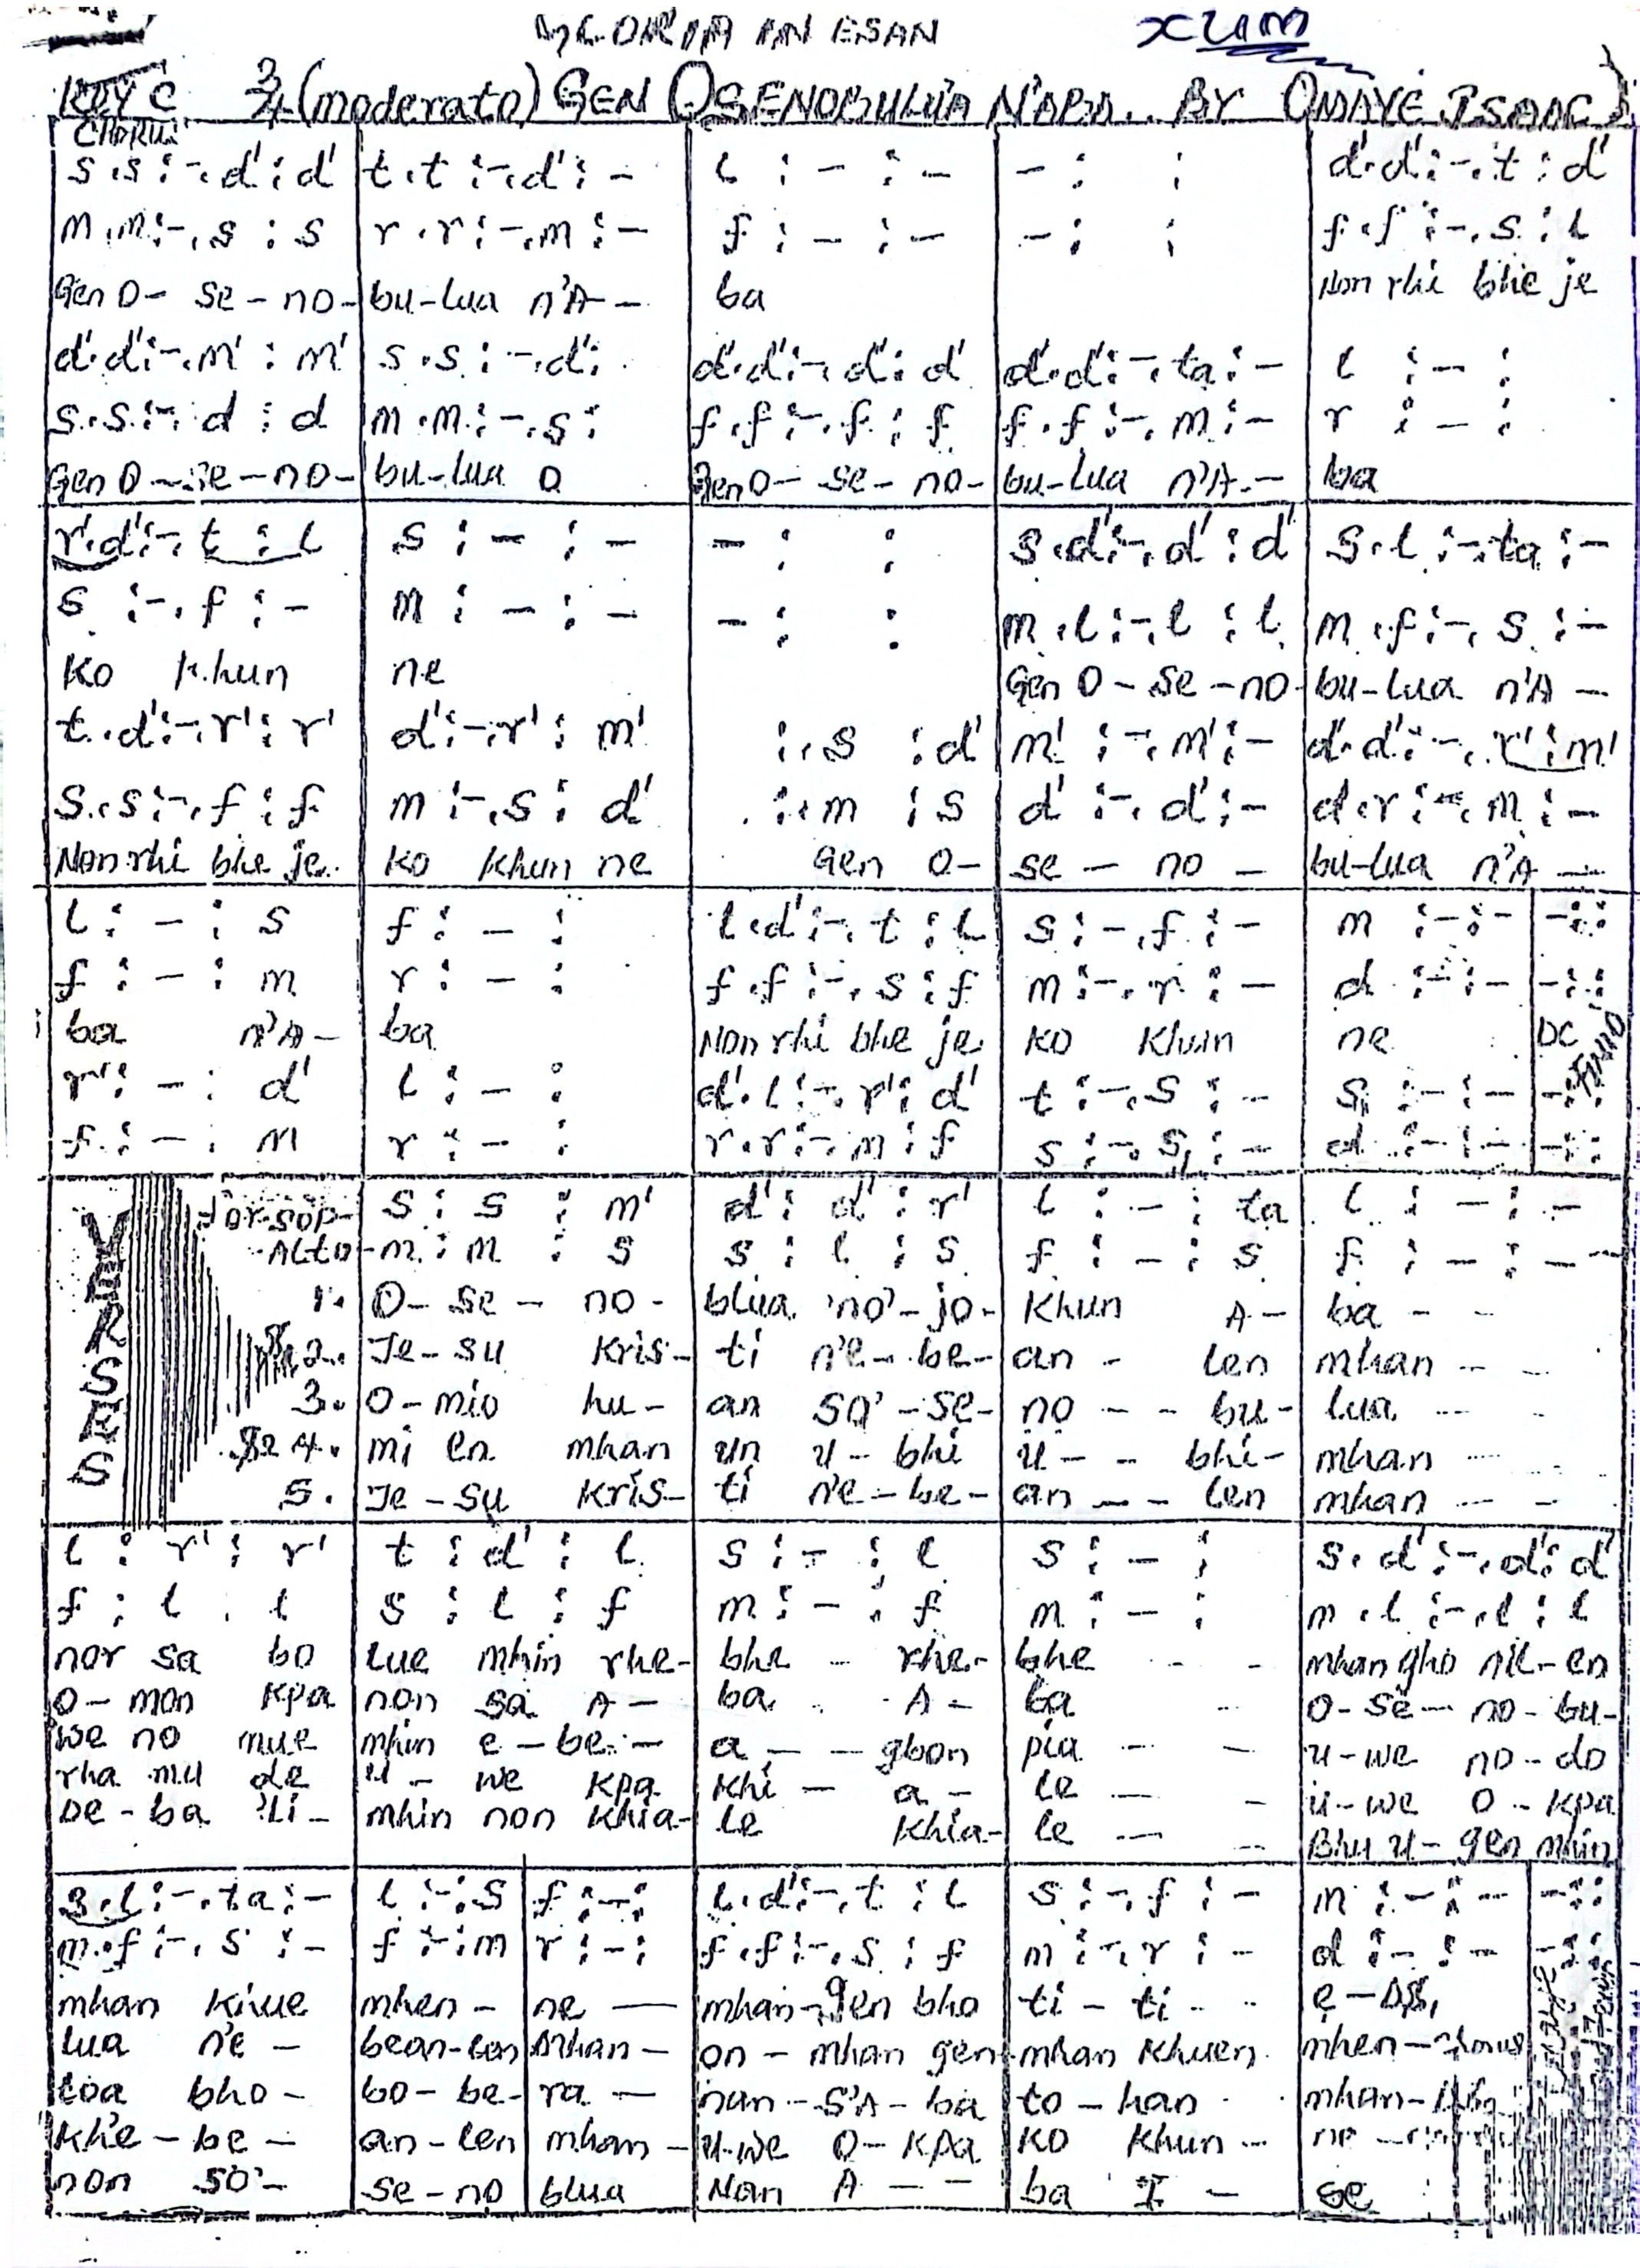 GLORIA IN ESAN XLIM
KEY C 3/4 (moderato) GEN OSENOBULUA N'ABA.. BY OMAYE ISAAC
CHORUS
s.s:-.d':d' t.t:-.d':- l:-:- -: : d'.d':-.t:d'
m.m:-.s:s r.r:-.m:- f:-:- -: : f.f:-.s:l
Gen O-se-no- bu-lua n'A- ba Non rhi bhe je
d'.d':-.m':m' s.s:-.d': d'.d':-.d':d' d'.d':-.ta:- l:-:
s.s:-.d:d m.m:-.s: f.f:-.f:f f.f:-.m:- r:-:
Gen O-se-no- bu-lua O Gen O-se-no- bu-lua n'A- ba
r'.d':-.t:l s:-:- -: : s.d':-.d':d' s.l:-.ta:-
s:-.f:- m:-:- -: : m.l:-.l:l m.f:-.s:-
ko khun ne Gen O-se-no- bu-lua n'A-
t.d':-.r':r' d':-.r':m' :.s:d' m':-.m':- d'.d':-.r':m'
s.s:-.f:f m:-.s:d' :.m:s d':-.d':- d.r:-.m:-
Non rhi bhe je ko khun ne Gen O- se-no- bu-lua n'A-
l:-:s f:-: l.d':-.t:l s:-.f:- m:-:- -::
f:-:m r:-: f.f:-.s:f m:-.r:- d:-:- -::
ba n'A- ba Non rhi bhe je ko khun ne DC FINO
r':-:d' l:-: d'.l:-.r':d' t:-.s:- s:-:- -::
f:-:m r:-: r.r:-.m:f s:-.s,:- d:-:- -::
VERSES
for Sop- s:s:m' d':d':r' l:-:ta l:-:-
Alto- m:m:s s:l:s f:-:s f:-:-
1. O-se-no- blua 'no'-jo- khun A- ba--
2. Je-su Kris- ti n'e-be- an-len mhan--
3. O-mio hu- an so'-se- no--bu- lua--
4. mi en mhan un u-bhi u--bhi- mhan--
5. Je-su Kris- ti n'e-be- an--len mhan--
l:r':r' t:d':l s:-:l s:-: s.d':-.d':d'
f:l:l s:l:f m:-:f m:-: m.l:-.l:l
nor sa bo lue mhin rhe- bhe-rhe- bhe-- mhan gho nil-en
O-mon kpa non sa A- ba A- ba-- O-se-no-bu-
we no mue mhin e-be- a--gbon pia-- u-we no-do
rha mu de u-we kpa khi-a- le-- u-we O-kpa
De-ba 'li- mhin non khia- le khia- le-- Bhu u-gen mhin
s.l:-.ta:- l:-:s f:-: l.d':-.t:l s:-.f:- m:-:- -::
m.f:-.s:- f:-:m r:-: f.f:-.s:f m:-.r:- d:-:- -::
mhan khue mhen- ne- mhan-gen bho ti-ti--
lua n'e- bean-len mhan- on-mhan gen- mhan khuen mhen-
toa bho- bo-be- ra- nan-S'A-ba to-han mhan-
khe-be- an-len mhan- u-we O-kpa ko khun- ne
non so'- se-no blua Nan A-- ba I- se